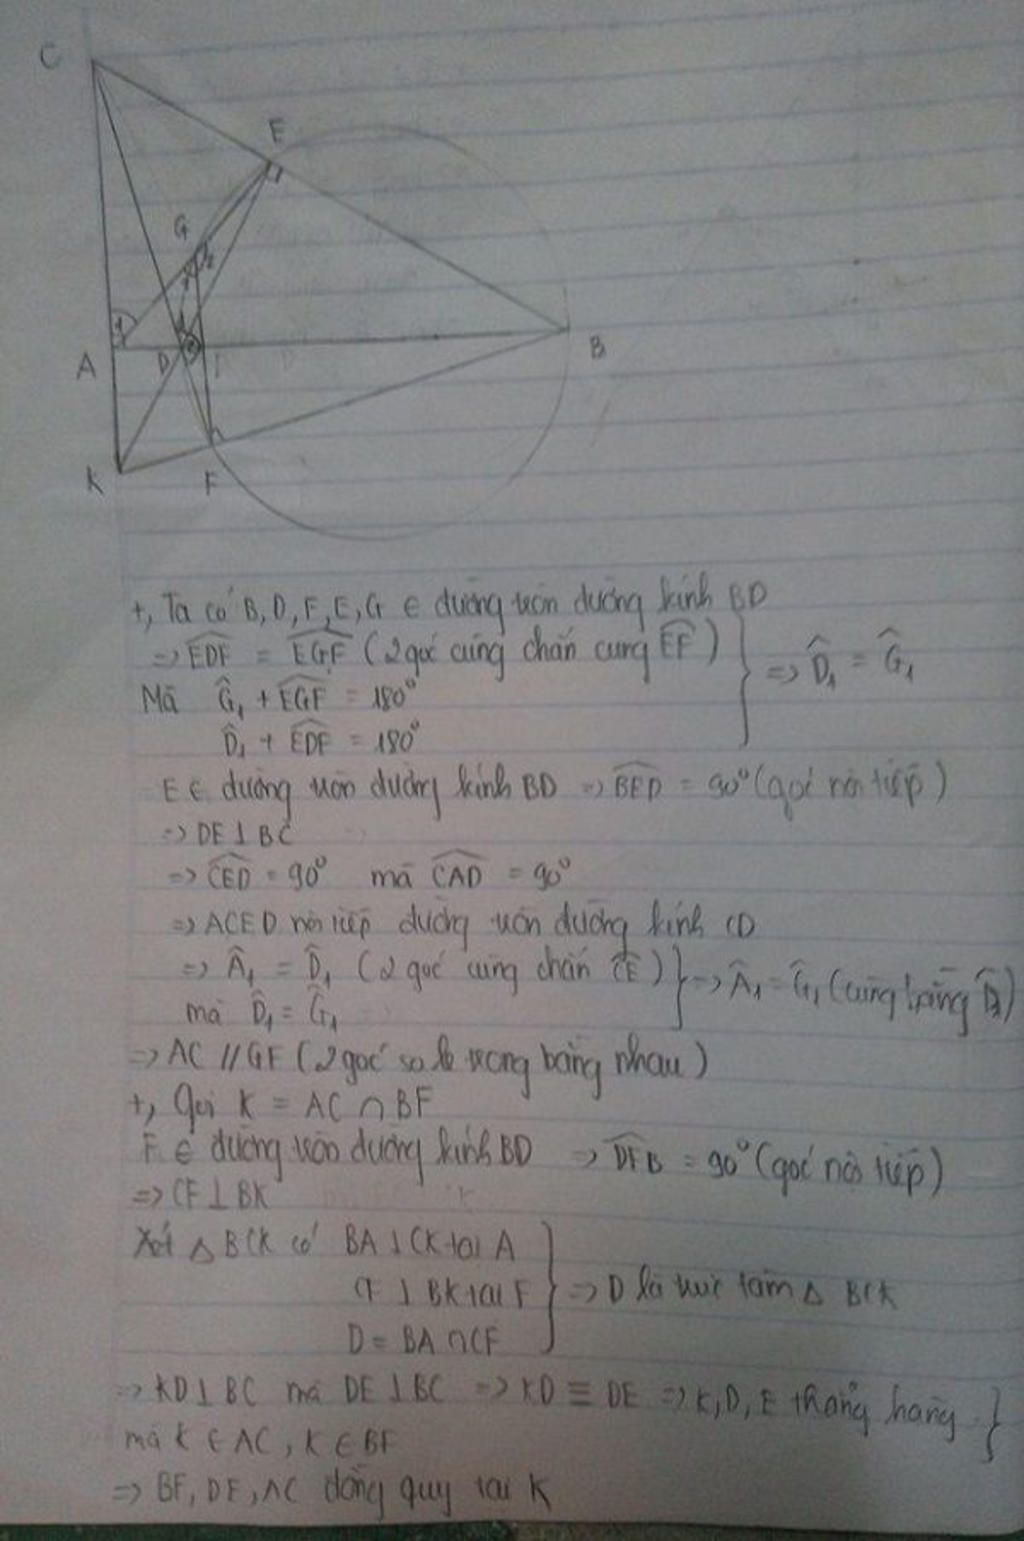 C
E
G
A
D
B
K
F
+, Ta có B, D, F, E, G ∈ đường tròn đường kính BD
=> EDF = EGF (2 góc cùng chắn cung EF)
Mà G₁ + EGF = 180°
D₁ + EDF = 180°
=> D₁ = G₁
E ∈ đường tròn đường kính BD => BED = 90° (góc nội tiếp)
=> DE ⊥ BC
=> CED = 90° mà CAD = 90°
=> ACED nội tiếp đường tròn đường kính CD
=> A₁ = D₁ (2 góc cùng chắn CE)
mà D₁ = G₁
=> A₁ = G₁ (cùng bằng D₁)
=> AC // GF (2 góc so le trong bằng nhau)
+, Gọi K = AC ∩ BF
F ∈ đường tròn đường kính BD => DFB = 90° (góc nội tiếp)
=> CF ⊥ BK
Xét △ BCK có BA ⊥ CK tại A
CF ⊥ BK tại F
D = BA ∩ CF
=> D là trực tâm △ BCK
=> KD ⊥ BC mà DE ⊥ BC => KD ≡ DE => K, D, E thẳng hàng
mà K ∈ AC, K ∈ BF
=> BF, DE, AC đồng quy tại K